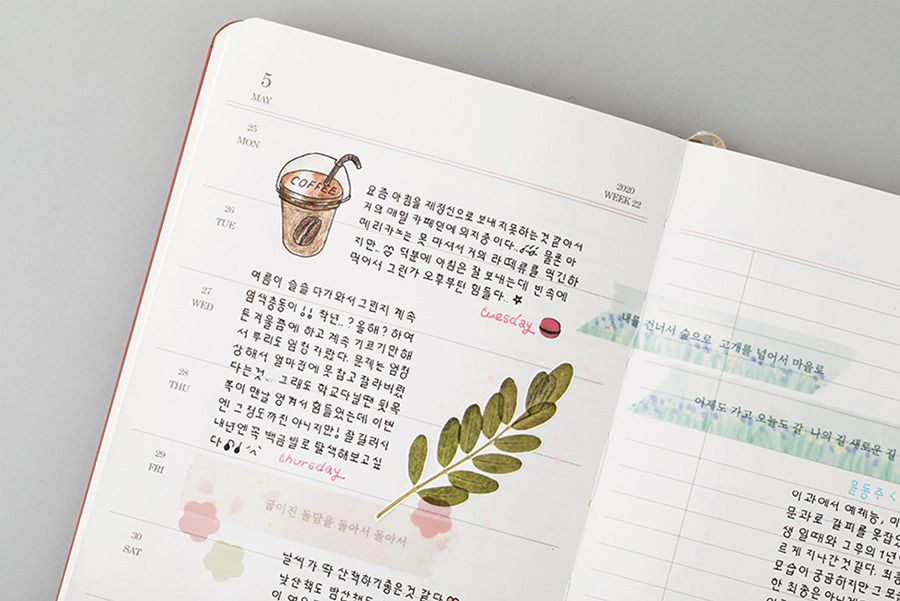 5
MAY
2020
WEEK 22
25
MON
26
TUE
27
WED
28
THU
29
FRI
30
SAT
COFFEE
요즘 아침을 제정신으로 보내지못하는것 같아서
거의 매일 카페인에 의지중이다.. 물론 아
메리카노는 못 마셔서 거의 라떼류를 먹긴하
지만.. 덕분에 아침은 잘 보내는데 빈속에
먹어서 그런가 오후부턴 힘들다..
tuesday
여름이 슬슬 다가와서 그런지 계속
염색충동이!! 작년..? 올해? 하여
튼 겨울쯤에 하고 계속 기르기만해
서 뿌리도 엄청자랐다. 문제는 엄청
상해서 얼마전에 못참고 잘라버렸
다는것... 그래도 학교다닐땐 뒷목
쪽이 맨날 엉켜서 힘들었는데 이번
엔 그정도까진 아니지만! 잘길러서
내년엔꼭 백금발로 탈색해보고싶
다
thursday
굽이진 돌담을 돌아서 돌아서
날씨가 딱 산책하기좋은것 같다
낮산책도 밤산책도
내를 건너서 숲으로 고개를 넘어서 마을로
어제도 가고 오늘도 갈 나의 길 새로운 길
윤동주 <
이과에서 예체능, 이
문과로 갈피를 못잡으
생 일때와 그후의 1년
르게 지나간것같다. 최종
모습이 궁금하지만 그 모
한 최종은 아닌게